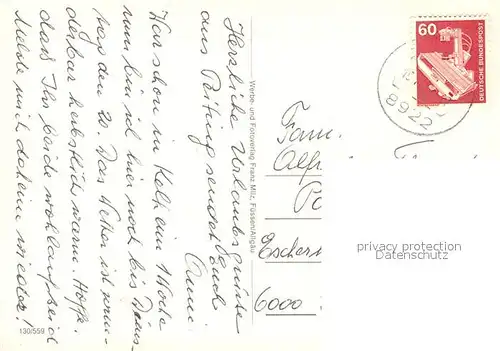 Herzliche Urlaubsgrüße
aus Peiting sendet Euch
Anni.
War schon in Kelheim 1 Woche
nun bin ich hier noch bis Diens-
tag den 20. Das Wetter ist wun-
derbar herbstlich warm. Hoffe
daß Ihr beide wohlauf seid
Melde mich daheim wieder!
130/559
Werbe- und Fotoverlag Franz Milz, Füssen/Allgäu
60
DEUTSCHE BUNDESPOST
8922
Fam.
Alf
Eschern
6000
privacy protection
Datenschutz